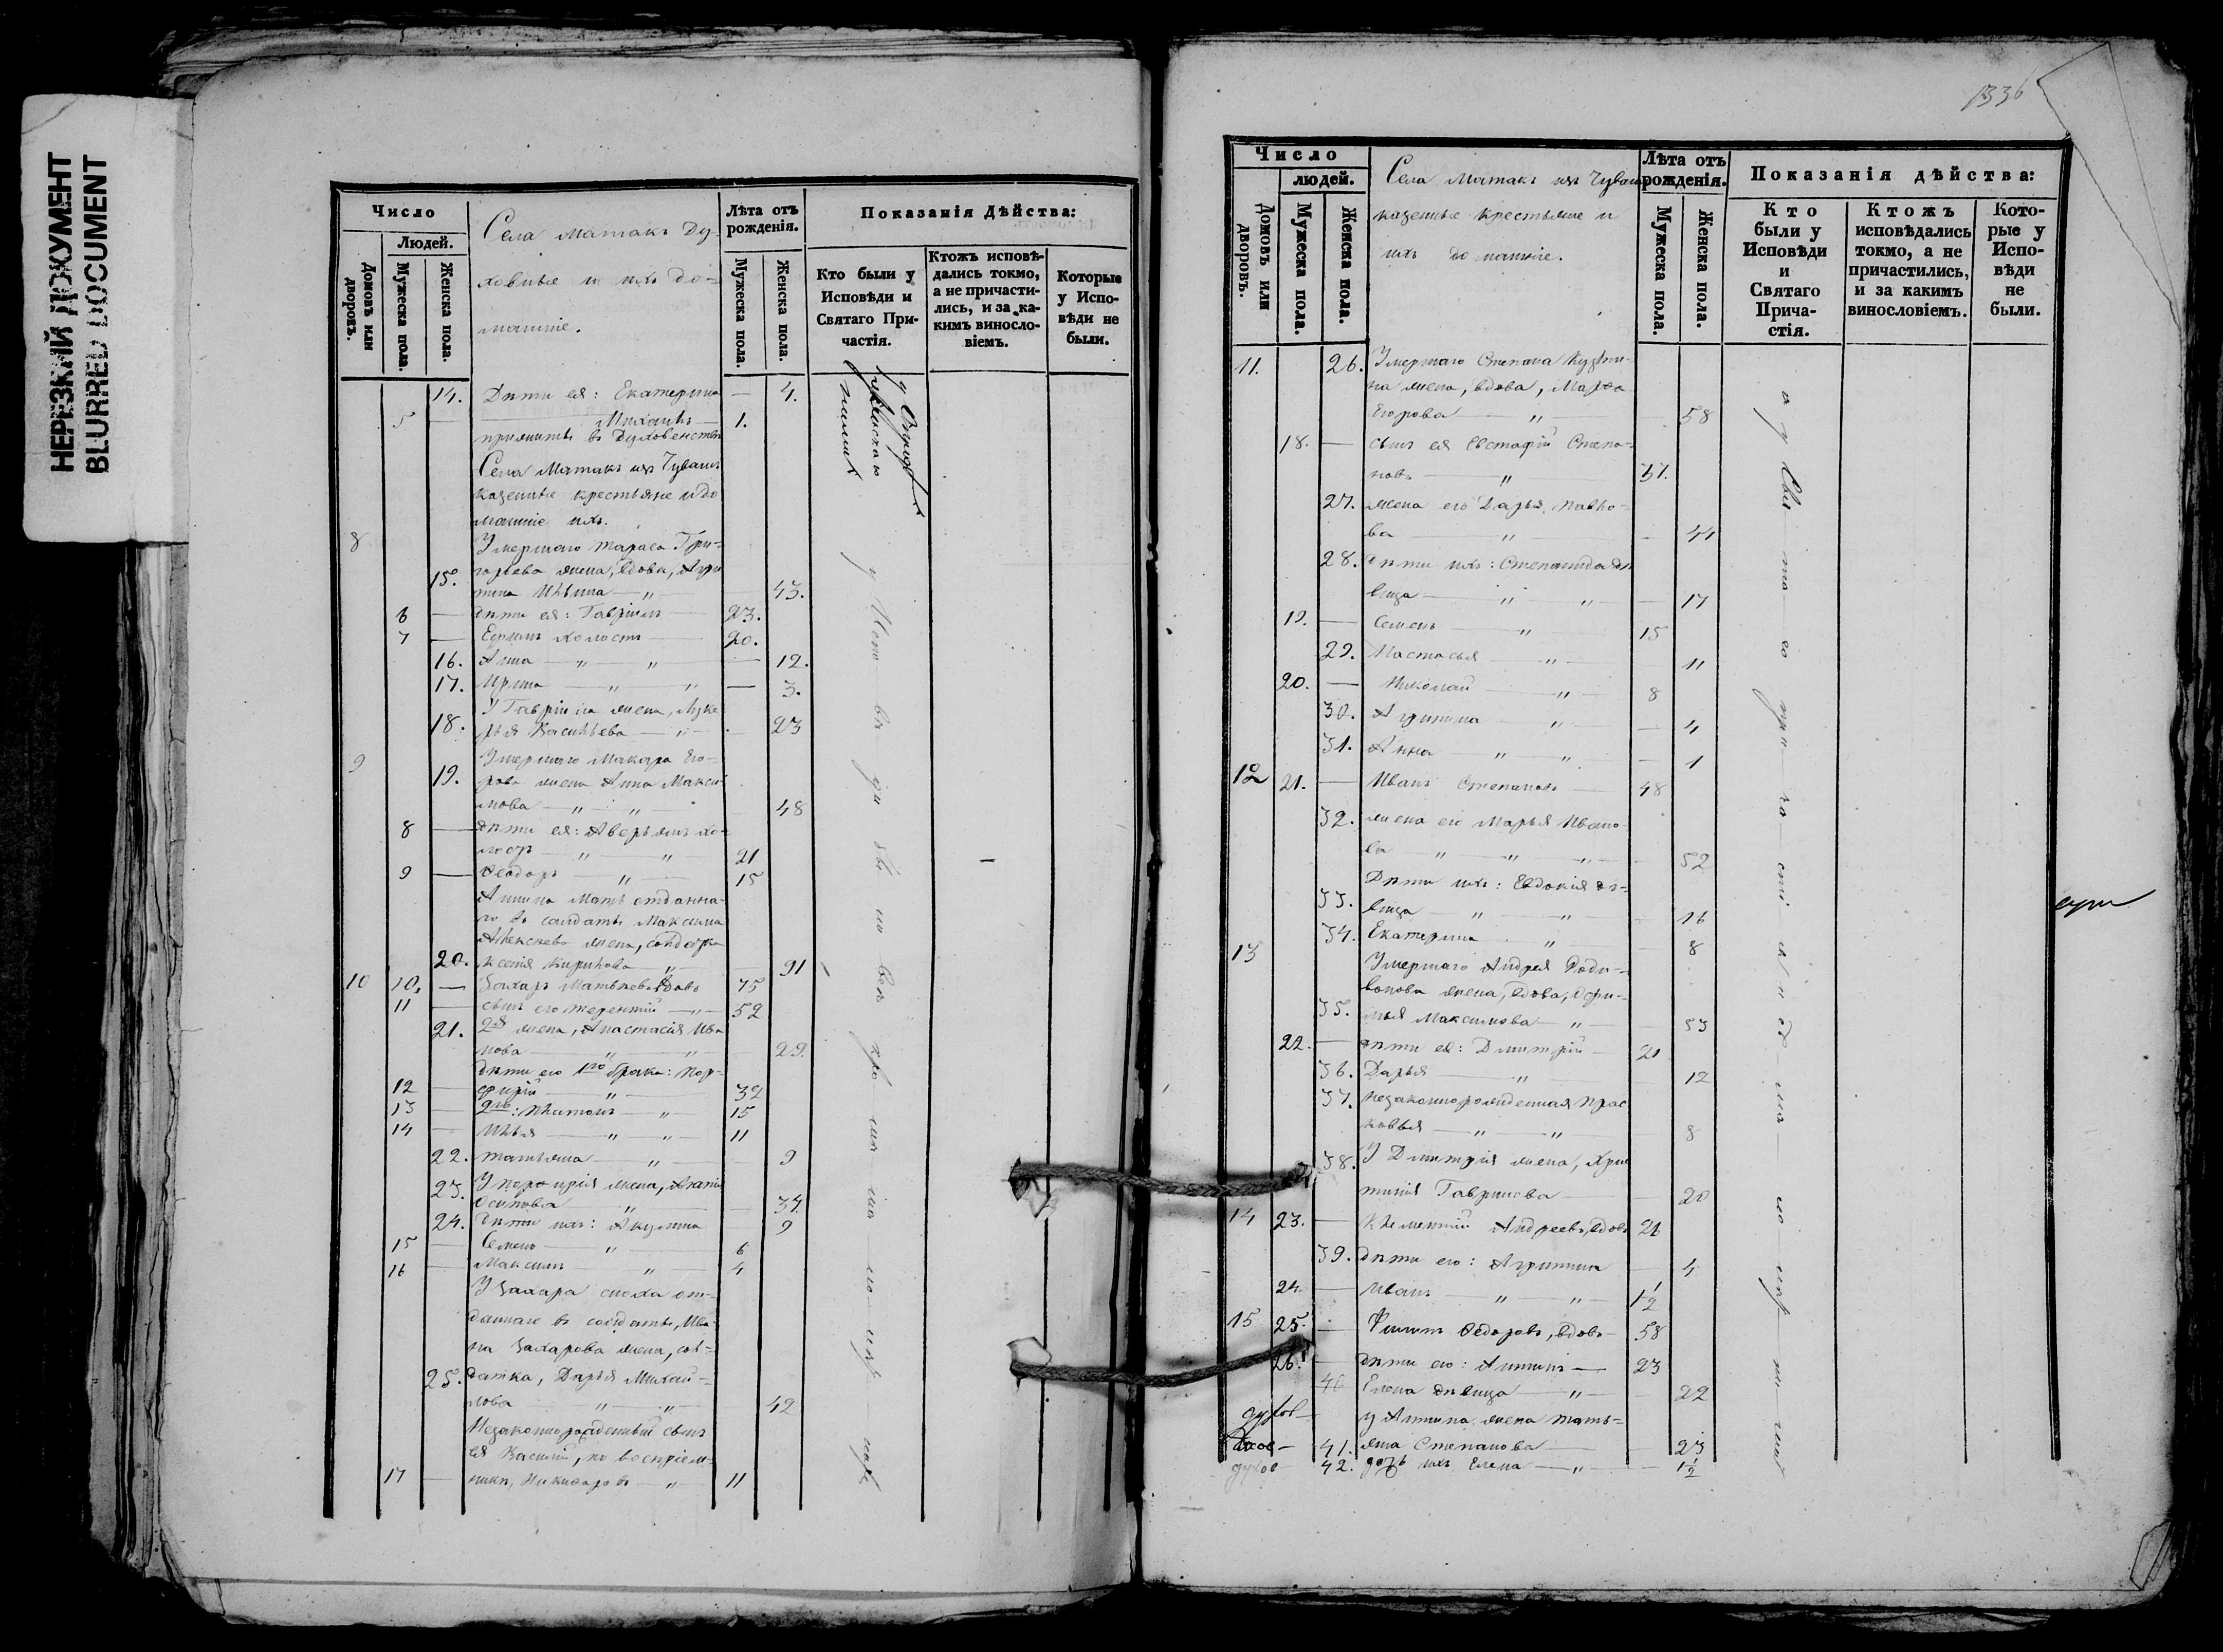 НЕРЕЗКИЙ ДОКУМЕНТ
BLURRED DOCUMENT
Число
Людей.
Домовъ или дворовъ.
Мужеска пола.
Женска пола.
Села Матакъ Ду-
ховные и ихъ до-
машніе.
Лѣта отъ рожденія.
Мужеска пола.
Женска пола.
Показанія Дѣйства:
Кто были у Исповѣди и Святаго При-частія.
Ктожъ исповѣ-дались токмо, а не причасти-лись, и за ка-кимъ виносло-віемъ.
Которые у Испо-вѣди не были.
14. Дѣти ея: Екатерина — 4.
5 — Михаилъ — 1.
Села Матакъ изъ Чувашъ
казенные крестьяне и до
машніе ихъ.
8 Умершаго Тараса Гри-
15. горьева жена, вдова, Агри
пина Ильина — " 43.
6 — дѣти ея: Гавріилъ 23.
7 — Ефимъ холостъ 20.
16. Анна — " — " — 12.
17. Ирина — " — " — 3.
У Гавріила жена, Луке
18. рья Васильева — " — 23
9 Умершаго Макара Его-
19. рова жена Анна Макси
мова — " — " 48
8 — дѣти ея: Аверьянъ хо-
лостъ — " — " 21
9 — Ѳеодоръ — " — 15
Аннина мать отданна-
го въ солдаты Максима
Алексѣева жена, солдатка
20. Ксенія Кирилова — " — 91
10 10. — Захаръ Матвѣевъ вдовъ 75
11 — сынъ его Терентій — " — 52
21. 2я жена, Анастасія Ива
нова — " — " 29.
дѣти его 1го брака: Пор-
12 — фирій — " — 32
13 — 2го: Платонъ — " — 15
14 — Илья — " — " — 11
22. Татьяна — " — 9
У Порфирія жена, Агафія
23. Осипова — " — 34.
24. дѣти ихъ: Акулина — 9
15 — Семенъ — " — 6
16 — Максимъ — " — 4
У Захара сноха от-
даннаго въ солдаты, Ива-
на Захарова жена, сол-
25. датка, Дарья Михай-
лова — " — " 42
Незаконнорожденный сынъ
ея Василій, по воспріем-
17 — нику, Никифоровъ — " — 11
1336
Число
людей.
Домовъ или дворовъ.
Мужеска пола.
Женска пола.
Села Матакъ изъ Чувашъ
казенные крестьяне и
ихъ домашніе.
Лѣта отъ рожденія.
Мужеска пола.
Женска пола.
Показанія дѣйства:
Кто были у Исповѣди и Святаго Прича-стія.
Ктожъ исповѣдались токмо, а не причастились, и за какимъ винословіемъ.
Кото-рые у Испо-вѣди не были.
11. 26. Умершаго Степана Кузми-
на жена, вдова, Марѳа
Егорова — " — 58
18. — сынъ ея Евстафій Степа-
новъ — " 37.
27. жена его Дарья Павло-
ва — " — 44
28. дѣти ихъ: Степанида дѣ
вица — " — " — 17
19. — Семенъ — " — 15
29. Настасья — " — 11
20. — Николай — " — 8
30. Агрипина — " — 4
31. Анна — " — " — 1
12 21. — Иванъ Степановъ — 48
32. жена его Марья Ивано-
ва — " — " — " — 52
Дѣти ихъ: Евдокія дѣ-
33. вица — " — " — 16
34. Екатерина — " — 8
13 Умершаго Андрея Роди-
вонова жена, вдова, Ефи-
35. мья Максимова — " — 53
22. — дѣти ея: Дмитрій — 21
36. Дарья — " — 12
37. Незаконнорожденная Прас
ковья — " — " — 8
38. У Дмитрія жена, Хрис
тинія Гаврилова — 20
14 23. — Климентій Андреевъ, вдовъ 26
39. дѣти его: Агрипина — 4
24. — Иванъ — " — " — 1½
15 25. — Филипъ Ѳедоровъ, вдовъ — 58
26. — дѣти его: Антипъ — 23
40 Елена дѣвица — " — 22
у Антипа жена Тать-
41. яна Степанова — 23
42. дочь ихъ Елена — " — 1½